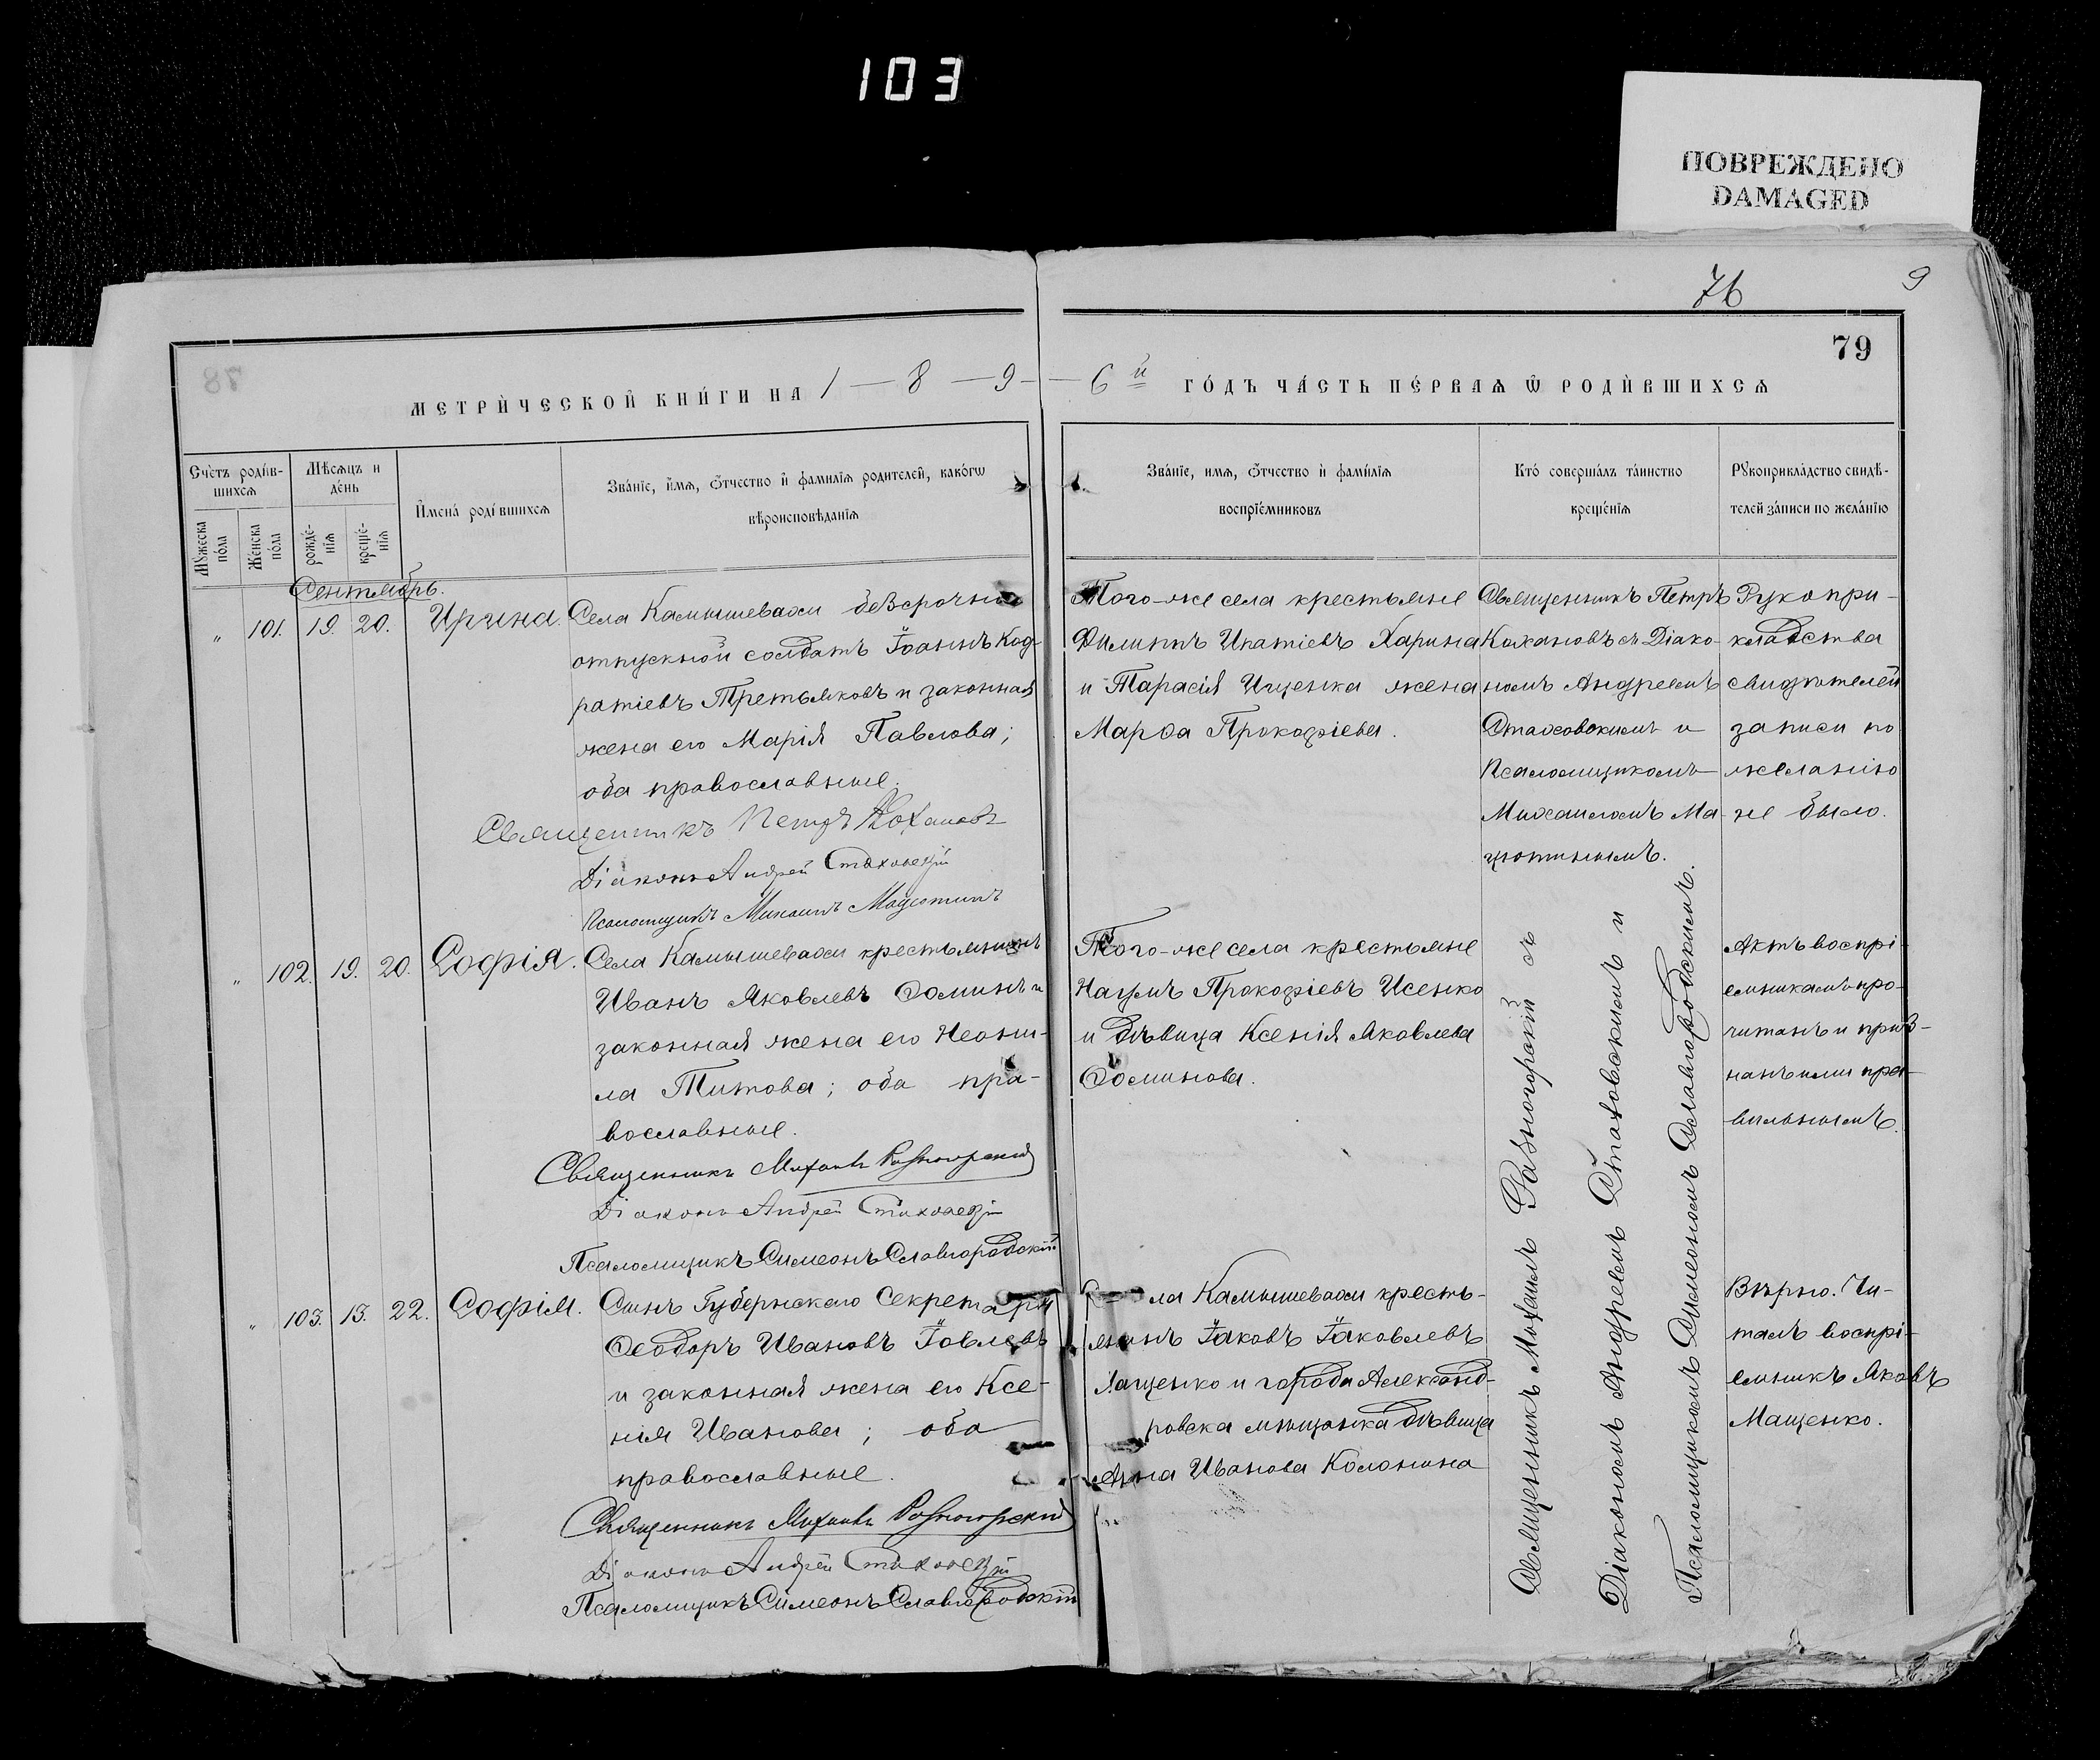 103
ПОВРЕЖДЕНО
DAMAGED
76
9
79
78
МЕТРИ́ЧЕСКОЙ КНИ́ГИ НА 1 — 8 — 9 — — 6й ГО́ДЪ ЧА́СТЬ ПЕ́РВАѦ Ѡ РОДИ́ВШИХСѦ
Сче́тъ роди́в-
шихсѧ
Мѣсѧцъ и
де́нь
Мꙋжеска
по́ла
Же́нска
по́ла
рожде́-
нїѧ
креще́-
нїѧ
Имена́ роди́вшихсѧ
Зва́нїе, и́мѧ, ѻ҆́тчество и҆ фами́лїѧ роди́телей, како́гѡ
вѣроисповѣ́данїѧ
Зва́нїе, имѧ, ѻ҆́тчество и҆ фами́лїѧ
воспрїе́мниковъ
Кто́ соверша́лъ та́инство
креще́нїѧ
Рꙋкоприкла́дство свидѣ́-
телей за́писи по жела́нїю
Сентябрь.
„ 101. 19. 20. Ирина.
Села Камышевахи безсрочно
отпускной солдатъ Іоаннъ Код-
ратіевъ Третьяковъ и законная
жена его Марія Павлова;
оба православные.
Священникъ Петръ Кохановъ
Діаконъ Андрей Стаховскій
Псаломщикъ Михаилъ Мацютинъ
Того-же села крестьяне
Филиппъ Ипатіевъ Харина
и Тарасія Ищенка жена
Марѳа Прокофіева.
Священникъ Петръ
Кохановъ съ Діако-
номъ Андреемъ
Стаховскимъ и
Псаломщикомъ
Михаиломъ Ма-
цютинымъ.
Рукопри-
кладства
свидѣтелей
записи по
желанію
не было.
„ 102. 19. 20. Софія.
Села Камышевахи крестьянинъ
Иванъ Яковлевъ Ѳоминъ и
законная жена его Неони-
ла Титова; оба пра-
вославные.
Священникъ Михаилъ Разногорскій
Діаконъ Андрей Стаховскій
Псаломщикъ Симеонъ Славгородскій
Того-же села крестьяне
Наумъ Прокофіевъ Исенко
и дѣвица Ксенія Яковлева
Ѳоминова.
Актъ воспрі-
емникамъ про-
читанъ и приз-
нанъ ими пра-
вильнымъ.
„ 103. 13. 22. Софія.
Сынъ Губернскаго Секретаря
Ѳеодоръ Ивановъ Іовлевъ
и законная жена его Ксе-
нія Иванова; оба
православные.
Священникъ Михаилъ Разногорскій
Діаконъ Андрей Стаховскій
Псаломщикъ Симеонъ Славгородскій
ла Камышевахи кресть-
янинъ Іаковъ Іаковлевъ
Мащенко и города Александ-
ровска мѣщанка дѣвица
Анна Иванова Колонина
Священникъ Михаилъ Разногорскій съ
Діакономъ Андреемъ Стаховскимъ и
Псаломщикомъ Симеономъ Славгородскимъ.
Вѣрно. Чи-
талъ воспрі-
емникъ Яковъ
Мащенко.